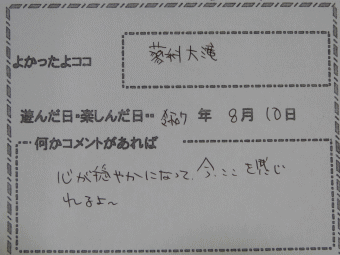 よかったよココ
蓼科大滝
遊んだ日・楽しんだ日・・令和7年 8月 10日
何かコメントがあれば
心が穏やかになって、今、ここを感じ
れるよ〜